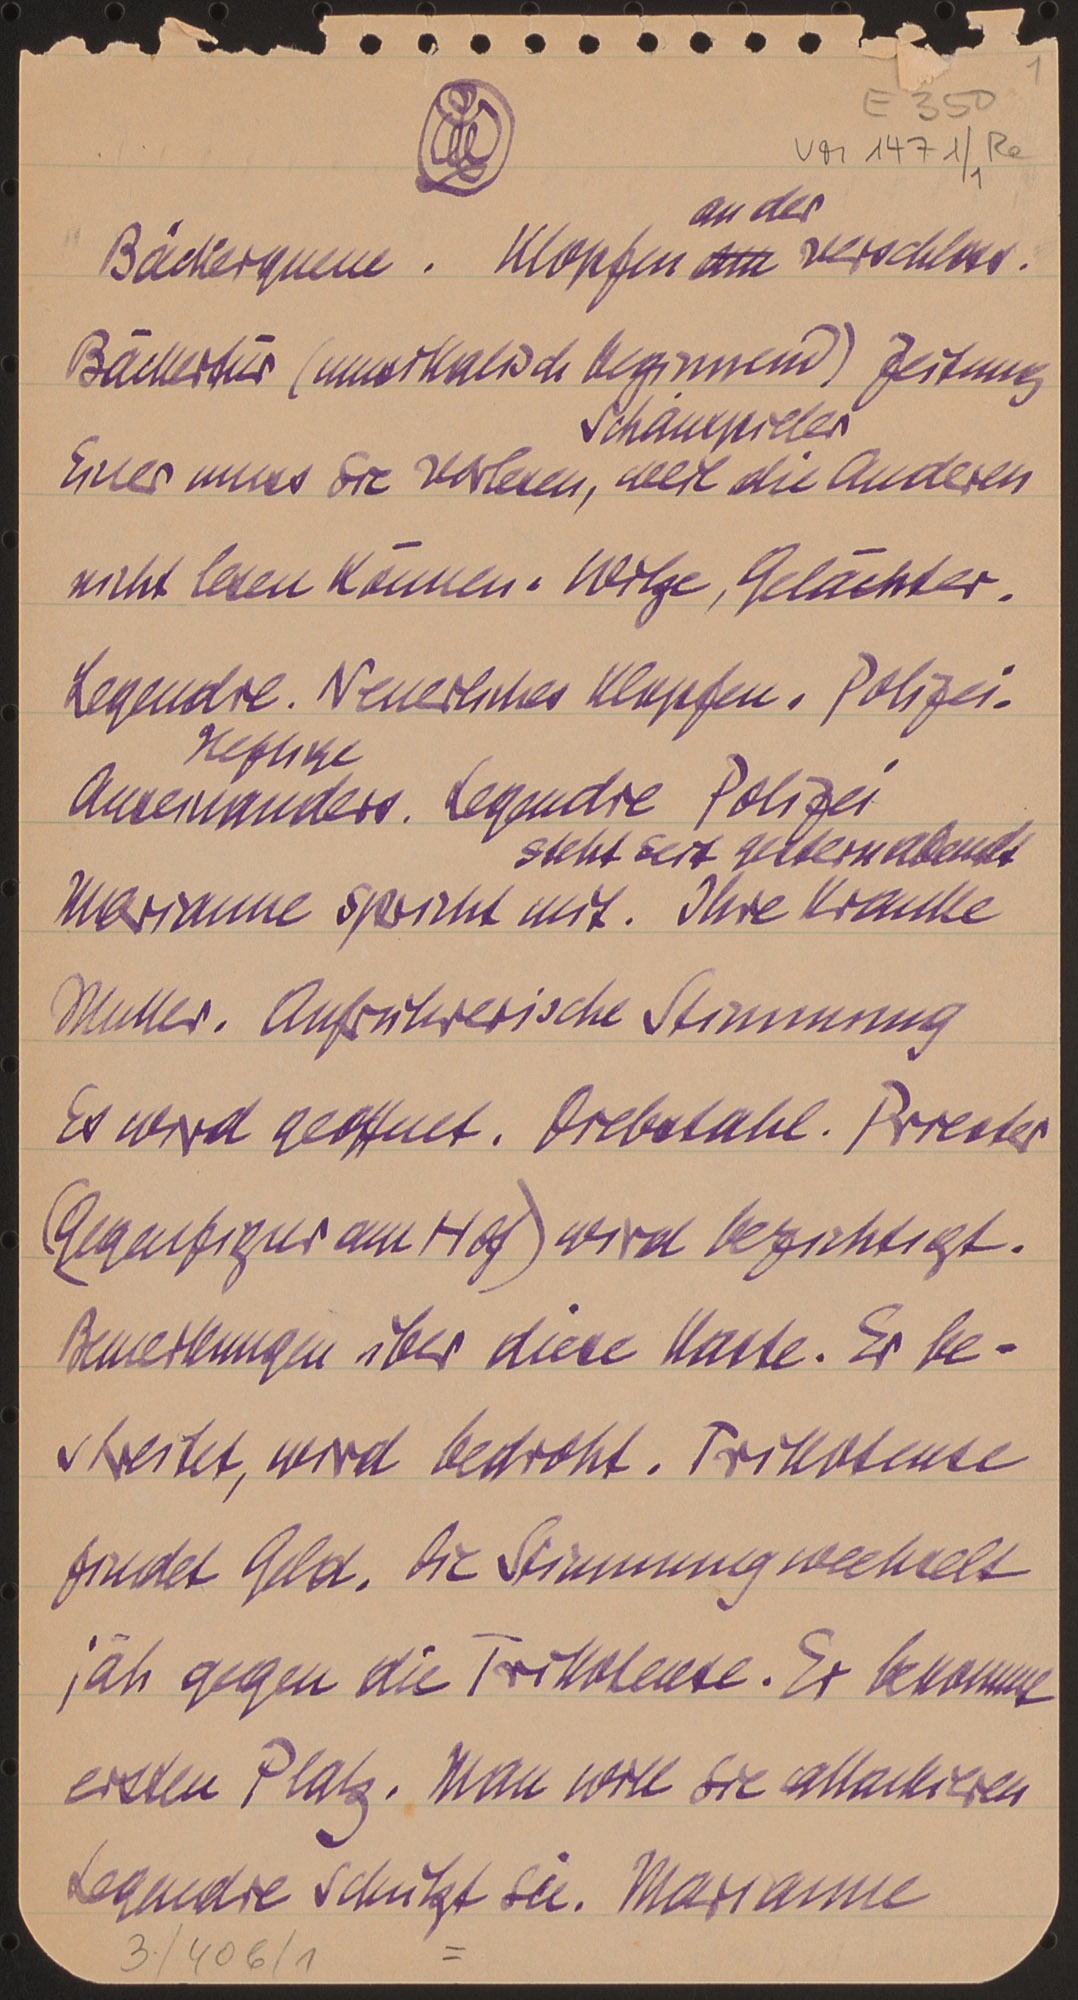 1
E 350
Vor 1471/1 Re
an der
Bäckerqueue. Klopfen am verschloss.
Bäckertür (musikalisch beginnend) Zeitung
Schauspieler
Einer muss sie vorlesen, weil die Anderen
nicht lesen können. Witze, Gelächter.
Legendre. Neuerliches Klopfen. Polizei.
Heftige
Auseinanders. Legendre Polizei
steht seit gesternabend
Marianne spricht mit. Ihre kranke
Mutter. Aufrührerische Stimmung
Es wird geöffnet. Diebstahl. Priester
(Gegenfigur am Hof) wird bezichtigt.
Bemerkungen über diese Kaste. Er be-
streitet, wird bedroht. Trikoteuse
findet Geld. Die Stimmung wechselt
jäh gegen die Trikoteuse. Er bekommt
ersten Platz. Man will sie attackieren
Legendre schützt sie. Marianne
3/406/1 =